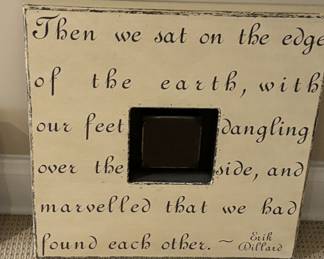 Then we sat on the edge
of the earth, with
our feet dangling
over the side, and
marvelled that we had
found each other. ~ Erik
Willard